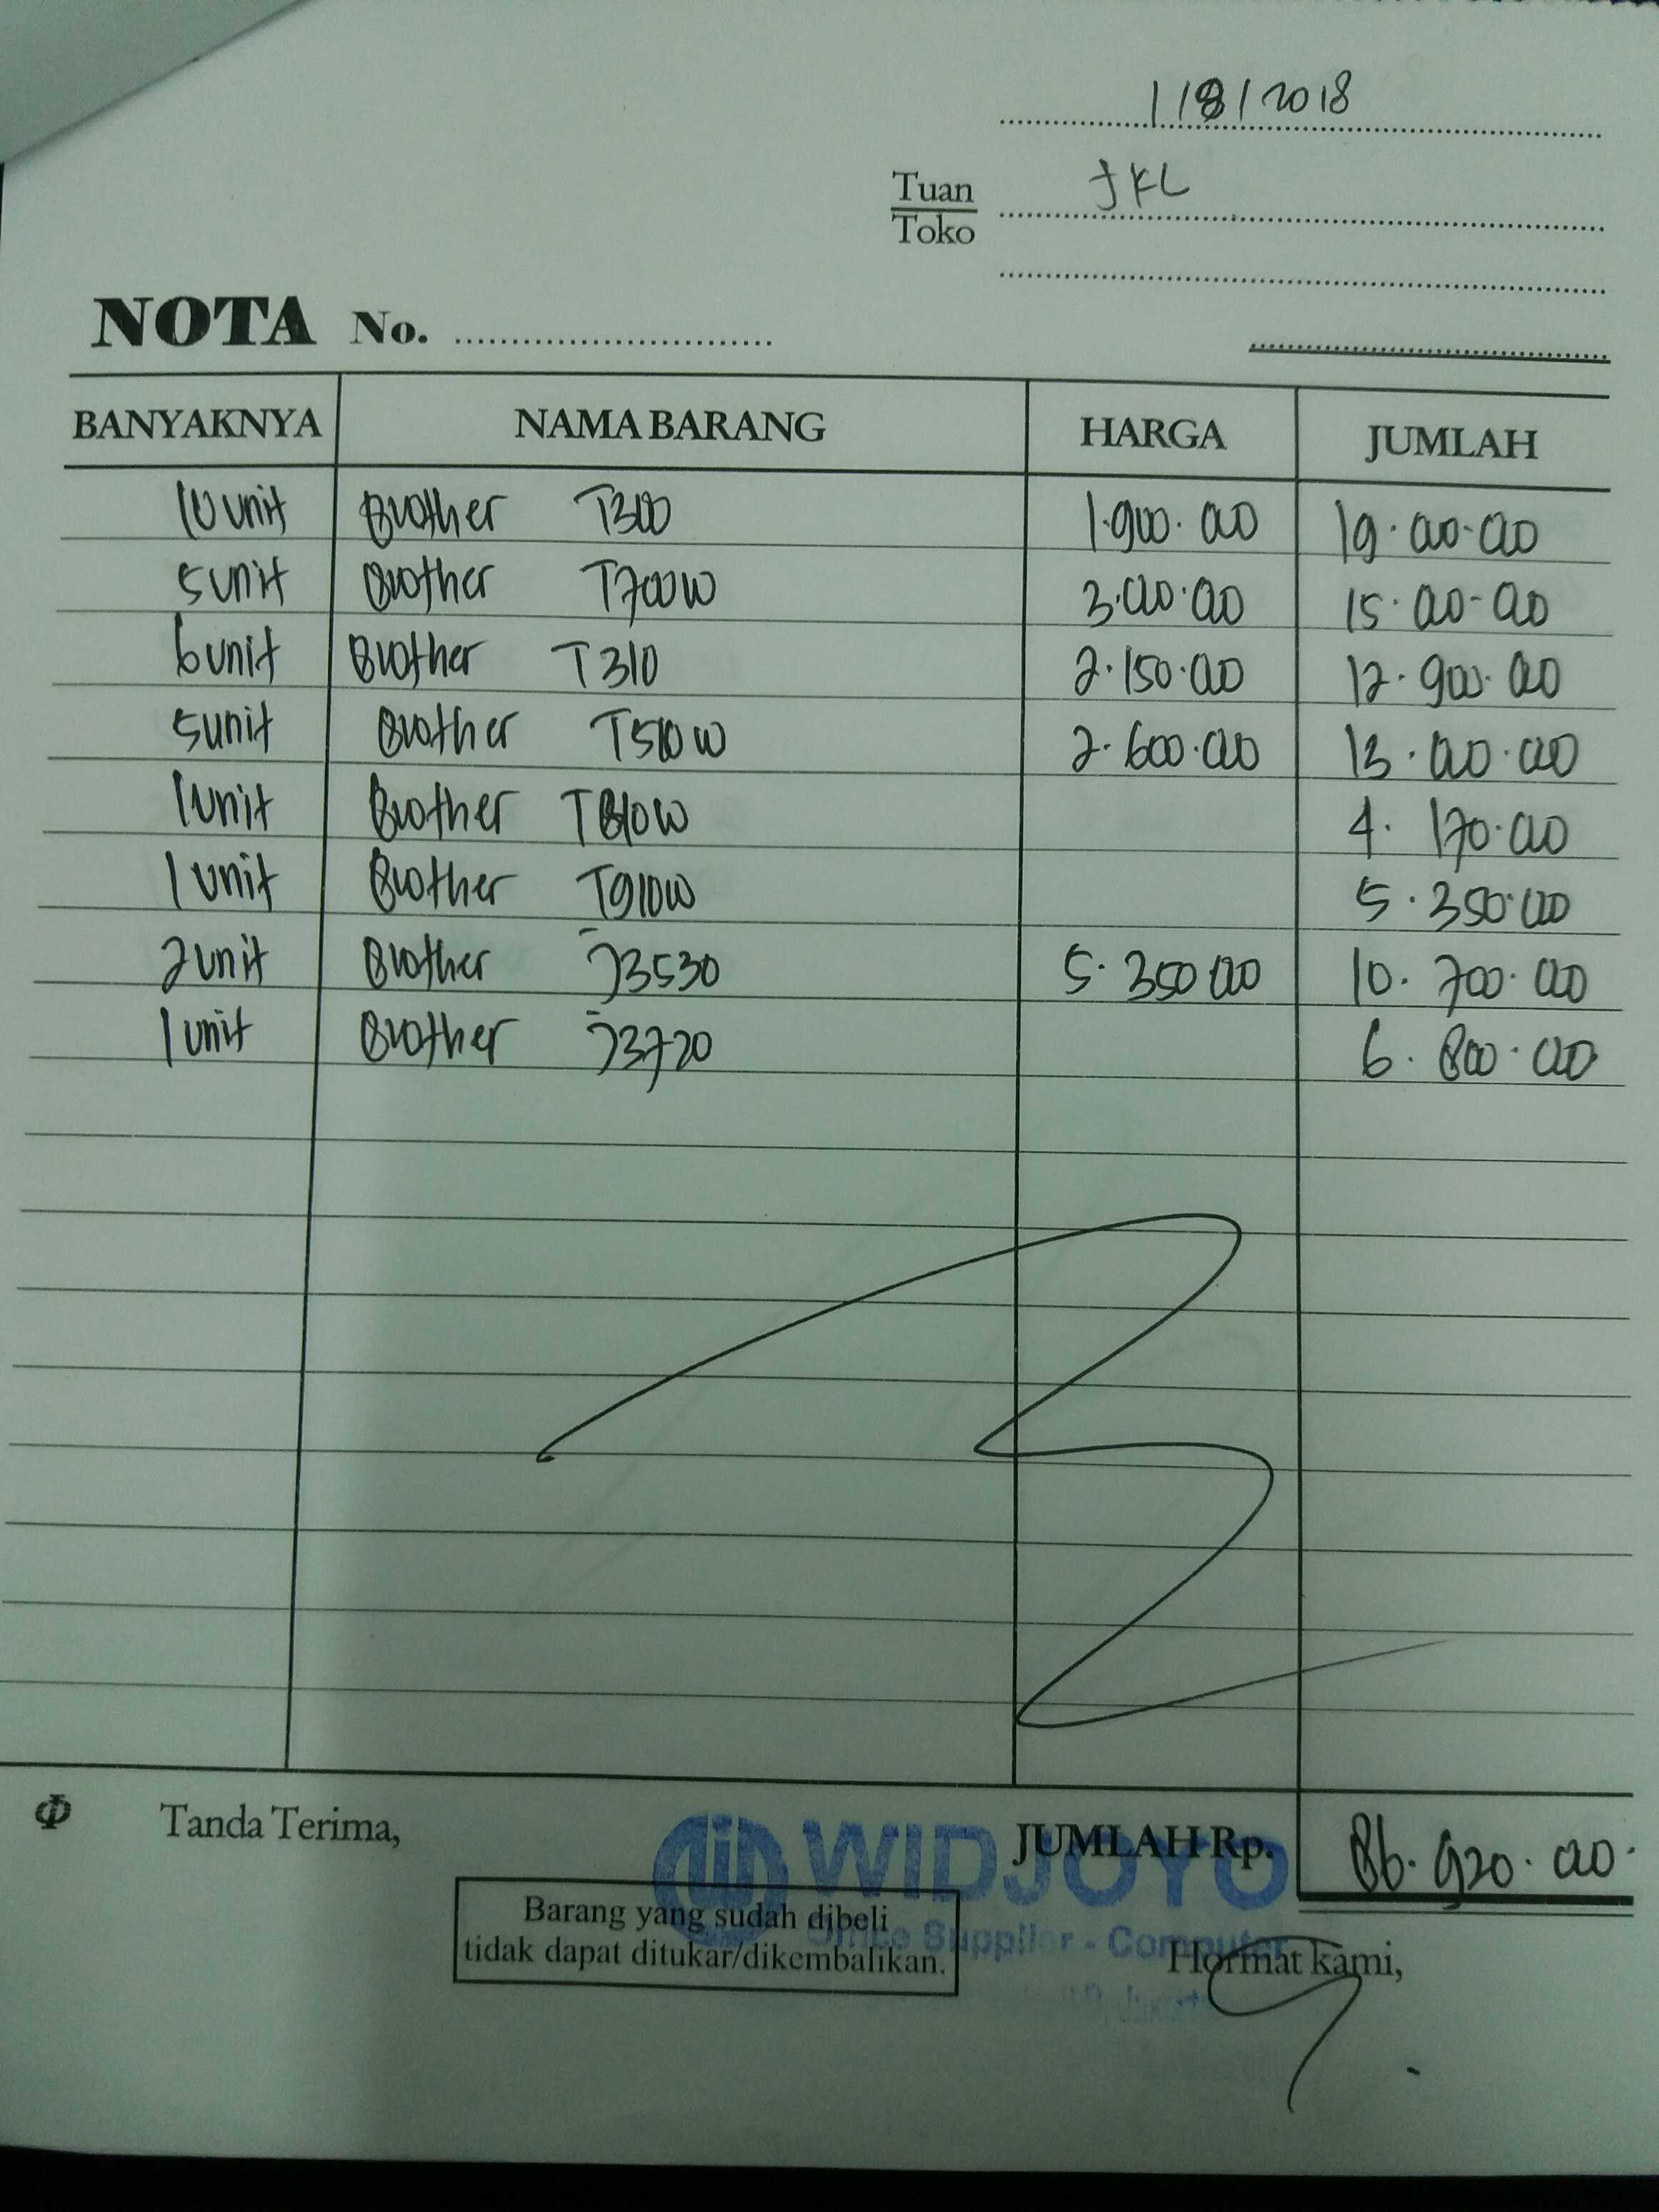 1/8/2018
Tuan
Toko
JKL
NOTA No.
BANYAKNYA NAMA BARANG HARGA JUMLAH
10 unit Brother T300 1.900.000 19.000.000
5 unit Brother T700W 3.000.000 15.000.000
6 unit Brother T310 2.150.000 12.900.000
5 unit Brother T510W 2.600.000 13.000.000
1 unit Brother T810W 4.170.000
1 unit Brother T910W 5.350.000
2 unit Brother J3530 5.350.000 10.700.000
1 unit Brother J3720 6.800.000
Tanda Terima,
JUMLAH Rp. 86.920.000
WIDJOYO
Office Supplier - Computer
Barang yang sudah dibeli
tidak dapat ditukar/dikembalikan.
Hormat kami,